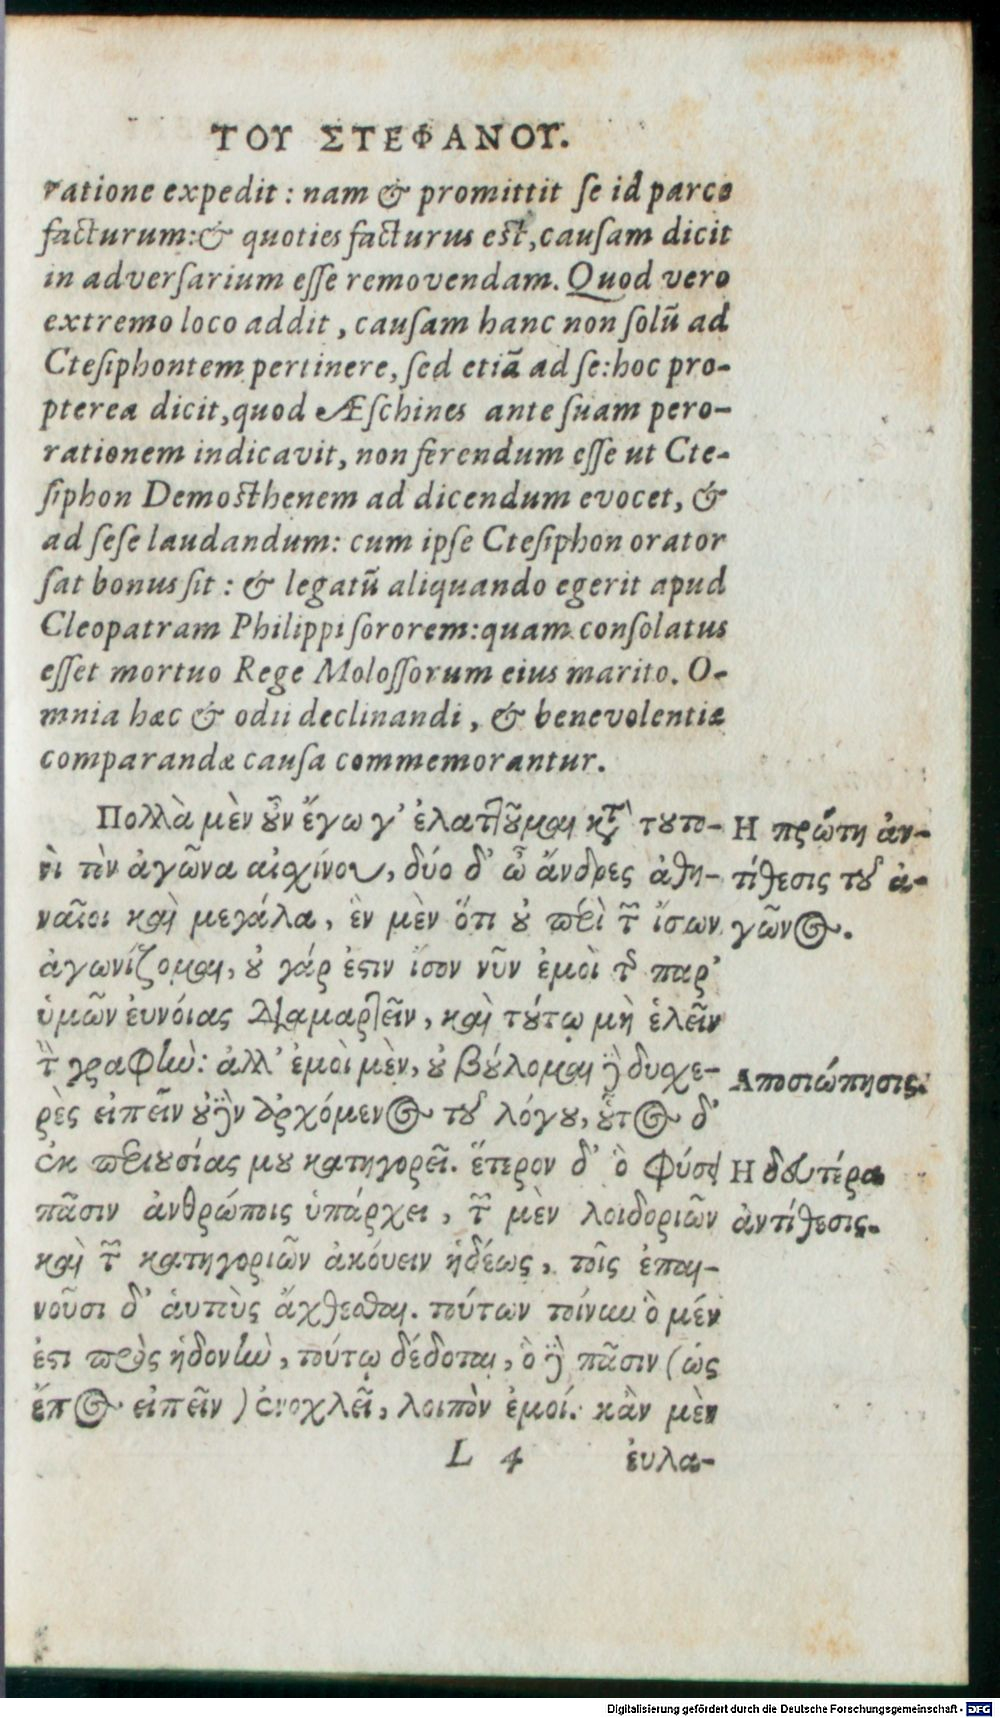 ΤΟΥ ΣΤΕΦΑΝΟΥ.
ratione expedit : nam & promittit ſe id parce
facturum:& quoties facturus est,cauſam dicit
in adverſarium eſſe removendam. Quod vero
extremo loco addit , cauſam hanc non ſolū ad
Cteſiphontem pertinere, ſed etiā ad ſe:hoc pro-
pterea dicit,quod Æſchines ante ſuam pero-
rationem indicavit, non ferendum eſſe ut Cte-
ſiphon Demosthenem ad dicendum evocet, &
ad ſeſe laudandum: cum ipſe Cteſiphon orator
ſat bonus ſit : & legatū aliquando egerit apud
Cleopatram Philippi ſororem:quam conſolatus
eſſet mortuo Rege Moloſſorum eius marito. O-
mnia hæc & odii declinandi , & benevolentiæ
comparandæ cauſa commemorantur.
Πολλὰ μὲν ȣ̓͂ν ἔγωγ’ ἐλατȣῦμαι κτ̀ τȣτο- Η πρώτη ἀν-
νὶ τὸν ἀγῶνα αἰχίνου, δύο δ’ ὦ ἄνδρες ἀθη- τίθεσις τȣ͂ ἀ-
ναῖοι καὶ μεγάλα, ἓν μὲν ὅτι ȣ περὶ τ͂ ἴσων γῶνος.
ἀγωνίζομαι, ȣ γάρ ἐϛιν ἴσον νῦν ἐμοὶ τ͂ παρ’
ὑμῶν ἐυνόιας διαμαρτεῖν, καὶ τȣ́τῳ μὴ ἑλεῖν
τ̀ γραφὴν: ἀλλ’ ἐμοὶ μὲν, ȣ βȣ́λομαι ἢ δυχε- Αποσιώπησις.
ρὲς εἰπεῖν ȣδὲν ἀρχόμενος τȣ͂ λόγȣ, ȣ̓͂τος δ’
ἐκ περιȣσίας μȣ κατηγορεῖ. ἕτερον δ’ ὃ φύσει Η δευτέρα
πᾶσιν ἀνθρώποις ὑπάρχει, τ͂ μὲν λοιδοριῶν ἀντίθεσις.
καὶ τ͂ κατηγοριῶν ἀκόυειν ἡδέως, τοῖς ἐπαι-
νοῦσι δ’ ἁυτοὺς ἄχθεσθαι. τούτων τοίνυν ὃ μέν
ἐϛι πρὸς ἡδονὴν, τούτῳ δέδοται, ὃ δὲ πᾶσιν (ὡς
ἔπος εἰπεῖν ) ἐνοχλεῖ, λοιπὸν ἐμοί. κἂν μὲν
L 4 ἐυλα-
Digitalisierung gefördert durch die Deutsche Forschungsgemeinschaft - DFG